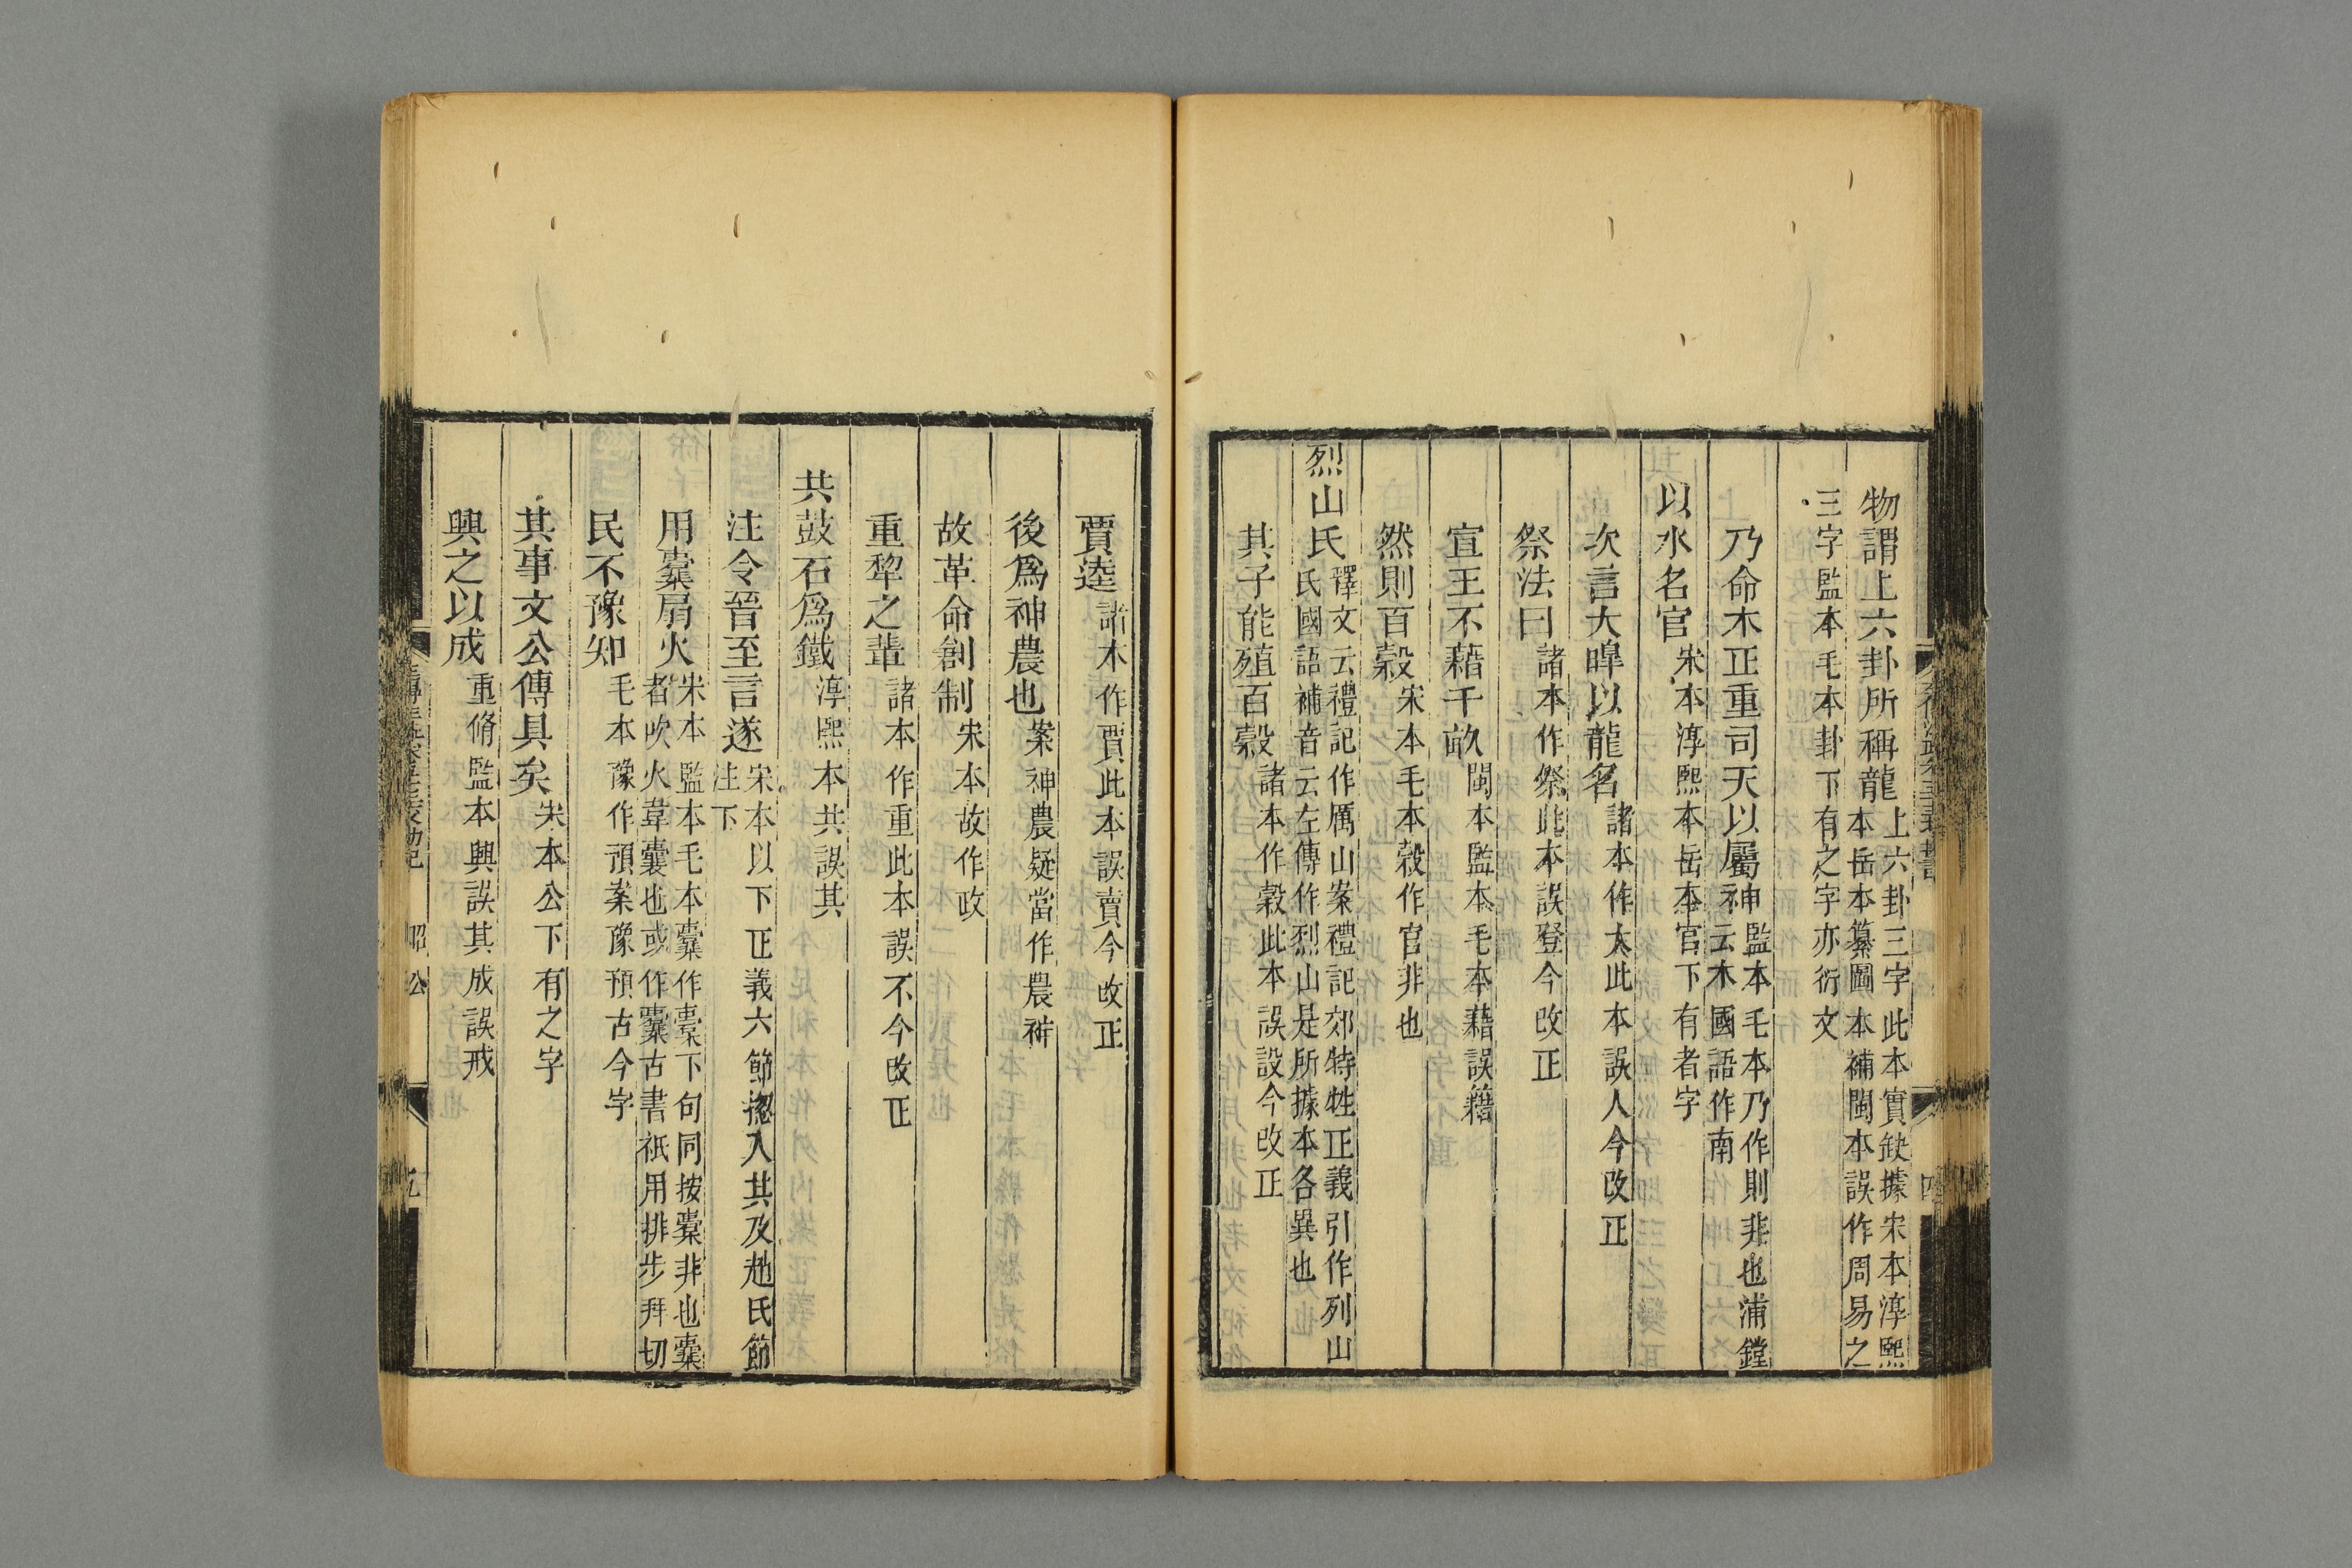 物謂上六卦所稱龍
上六卦三字此本實缺據宋本淳熙
本岳本纂圖本補閩本誤作周易之
三字監本毛本卦下有之字亦衍文
乃命木正重司天以屬神
監本毛本乃作則非也浦鏜
云木國語作南
以水名官宋本淳熙本岳本官下有者字
次言大皥以龍名諸本作大此本誤人今改正
祭法曰諸本作祭此本誤登今改正
宣王不藉千畝閩本監本毛本藉誤籍
然則百穀宋本毛本穀作官非也
烈山氏
釋文云禮記作厲山案禮記郊特牲正義引作列山
氏國語補音云左傳作烈山是所據本各異也
其子能殖百穀諸本作穀此本誤設今改正
賈逵諸本作賈此本誤賣今改正
後爲神農也案神農疑當作農神
故革命創制宋本故作政
重犂之輩諸本作重此本誤不今改正
共鼓石爲鐵淳熙本共誤其
注令晉至言遂
宋本以下正義六節揔入其及趙氏節
注下
用橐扇火
宋本監本毛本橐作槖下句同按槖非也橐
者吹火韋囊也或作橐古書祇用排步拜切
民不豫知毛本豫作預案豫預古今字
其事文公傳具矣宋本公下有之字
興之以成重脩監本興誤其成誤戒
昭公